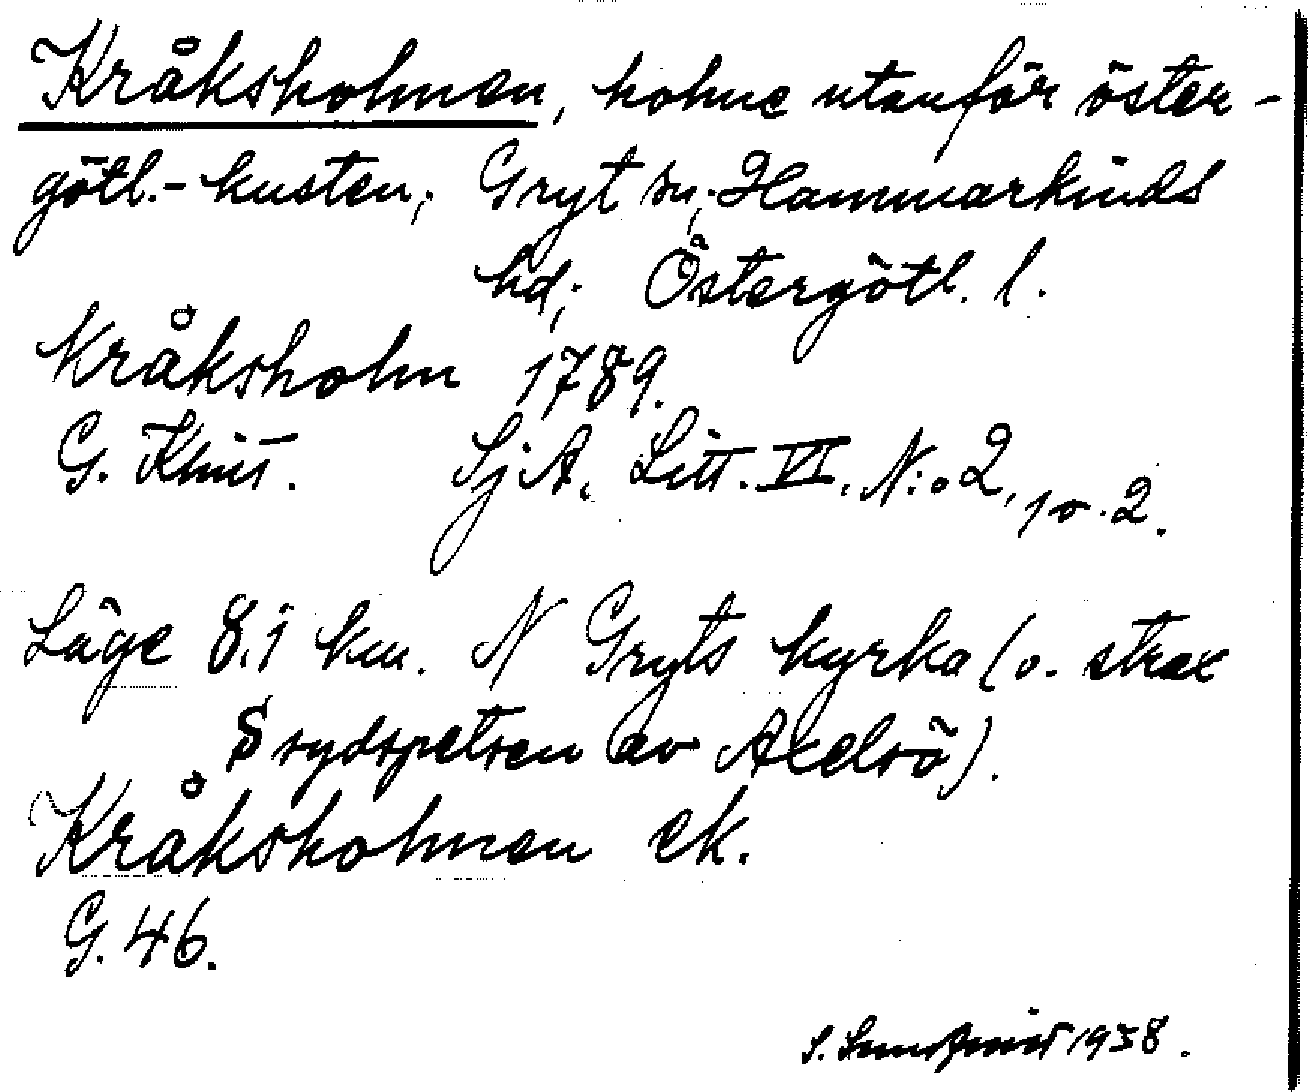 Kråksholmen, holme utanför öster-
götl.-kusten; Gryt sn; Hammarkinds
hd; Östergötl. l.
Kråksholm 1789.
G. Klint. SjA. Litt. VI. N:o 2, 1 o. 2.
Läge 8.1 km. N Gryts kyrka (o. strax
S sydspetsen av Axelsö).
Kråksholmen ek.
G. 46.
S. 1938.